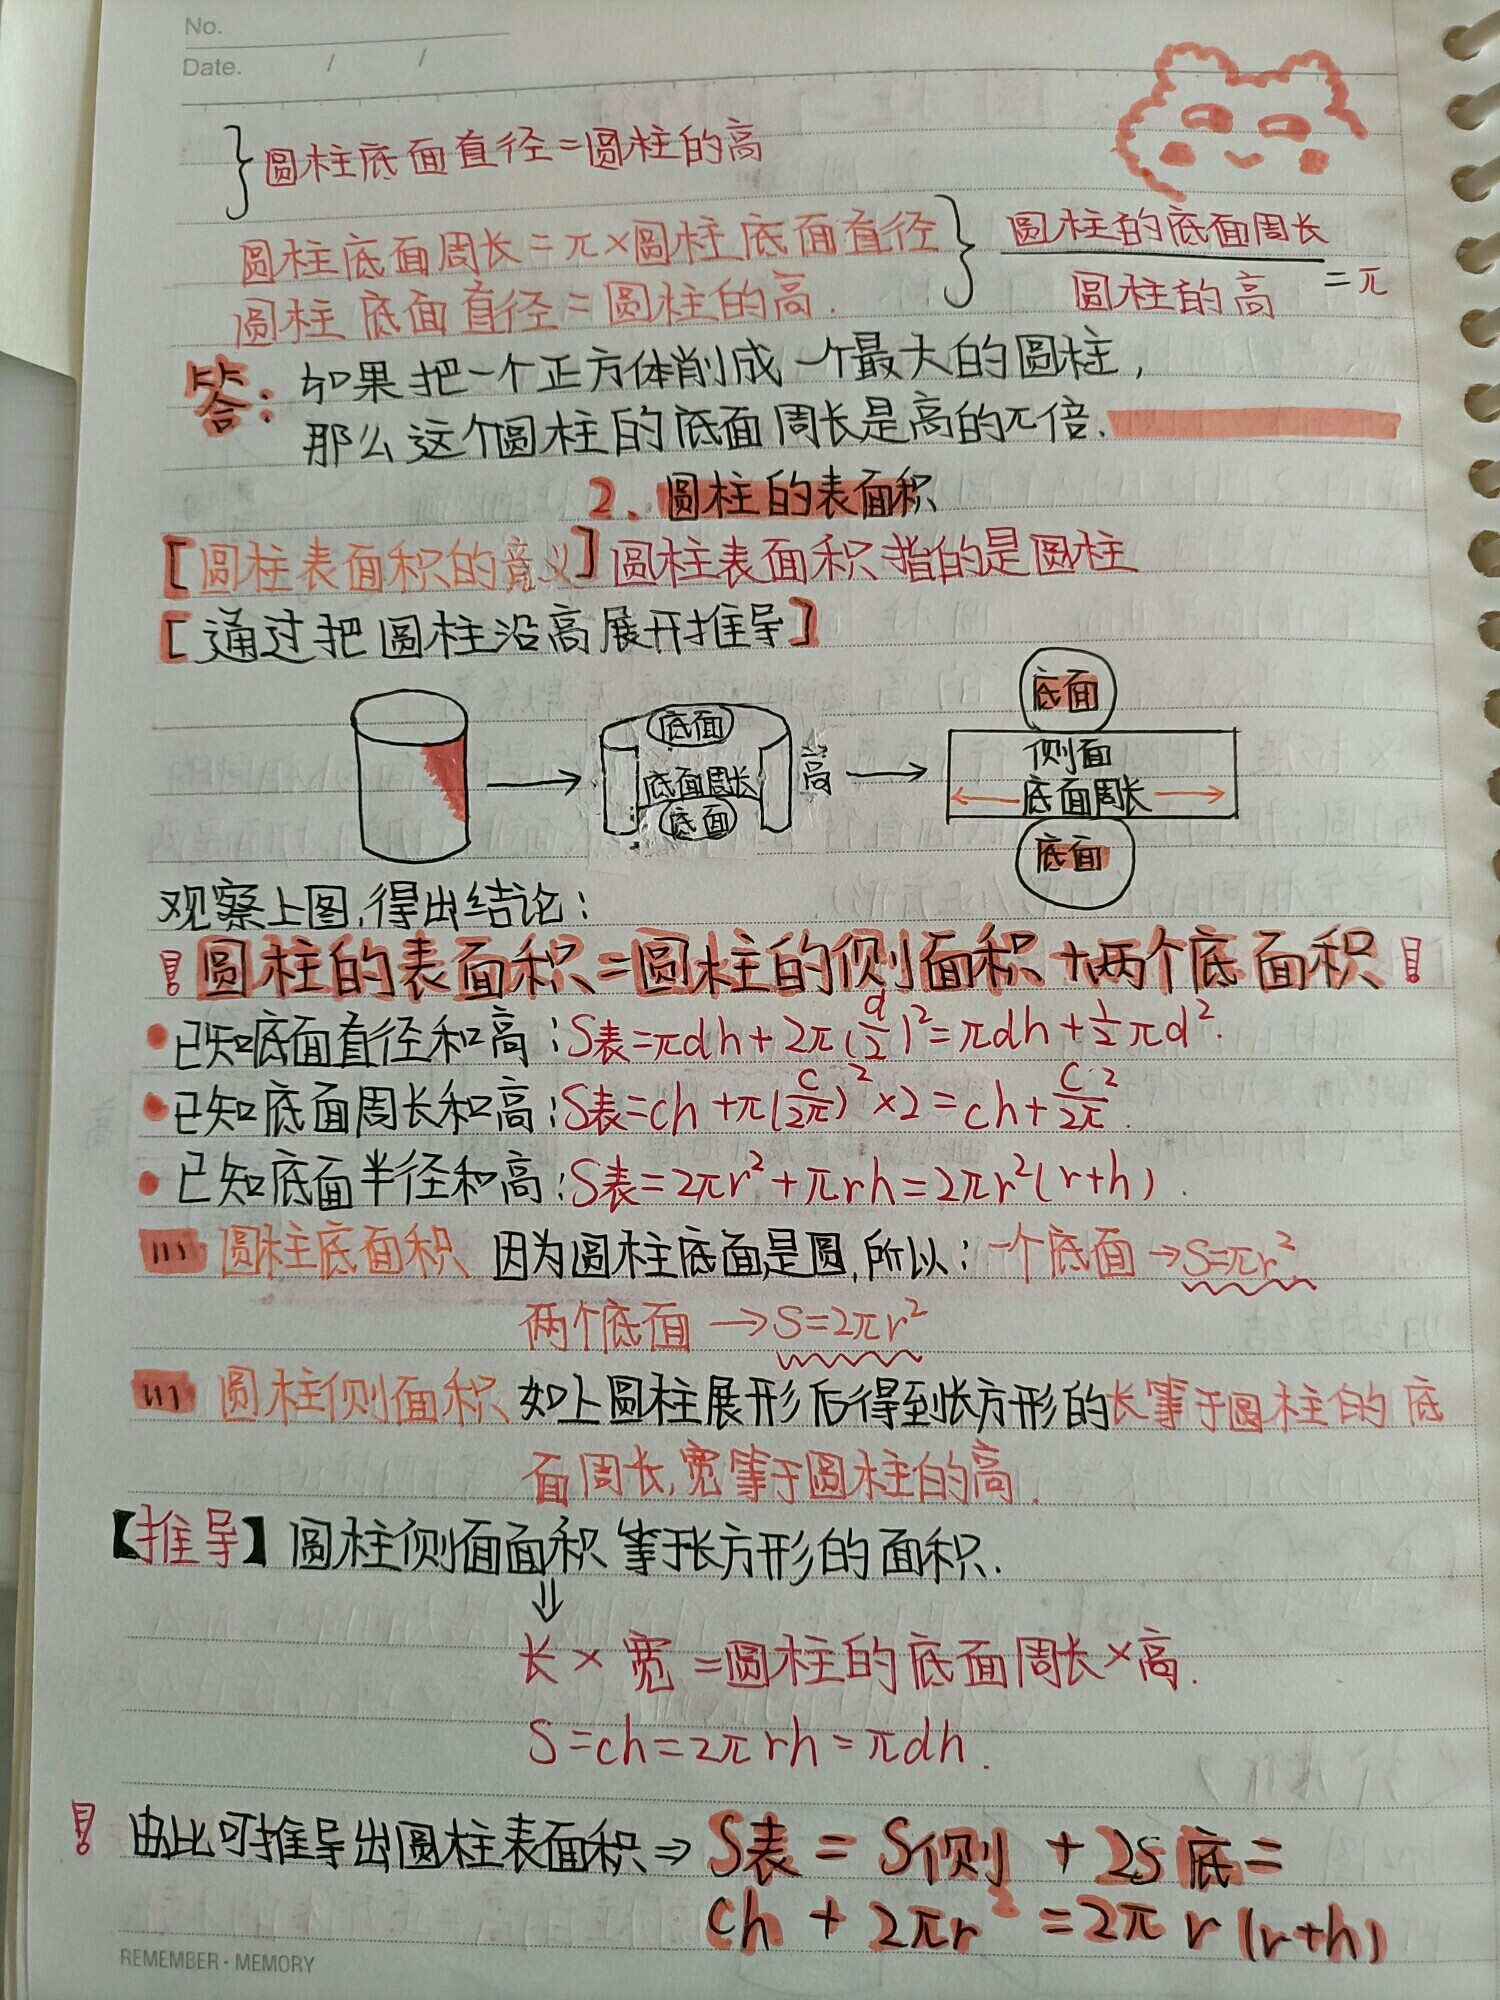 No.
Date. / /
}圆柱底面直径=圆柱的高
圆柱底面周长=π×圆柱底面直径
圆柱底面直径=圆柱的高.
} 圆柱的底面周长/圆柱的高=π
答:如果把一个正方体削成一个最大的圆柱,
那么这个圆柱的底面周长是高的π倍.
2、圆柱的表面积
[圆柱表面积的意义]圆柱表面积指的是圆柱
[通过把圆柱沿高展开推导]
底面
底面周长
底面
高
底面
侧面
底面周长
底面
观察上图,得出结论:
!圆柱的表面积=圆柱的侧面积+两个底面积!
•已知底面直径和高:S表=πdh+2π(d/2)²=πdh+½πd².
•已知底面周长和高:S表=ch+π(c/2π)²×2=ch+c²/2π.
•已知底面半径和高:S表=2πr²+πrh=2πr²(r+h).
圆柱底面积 因为圆柱底面是圆,所以:一个底面→S=πr²
两个底面→S=2πr²
圆柱侧面积 如上圆柱展形后得到长方形的长等于圆柱的底
面周长,宽等于圆柱的高.
【推导】圆柱侧面面积等于长方形的面积.
⇓
长×宽=圆柱的底面周长×高.
S=ch=2πrh=πdh.
!由此可推导出圆柱表面积⇒S表=S侧+2S底=
ch+2πr²=2πr(r+h)
REMEMBER·MEMORY